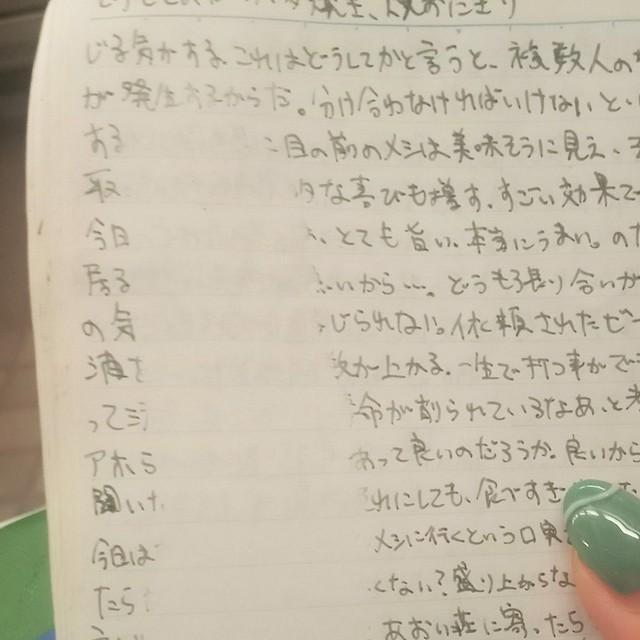 じる気がする。これはどうしてかと言うと、複数人の
が発生するからだ。分け合わなければいけないとい
ある 目の前のメシは美味そうに見え、
取 な喜びも増す。すごい効果で
今日 とても旨い。本当にうまい。の
居る いから…。どうも張り合いが
の気 じられない。休 されたビー
が上がる。一生で打つ事がで
って 命が削られているなあ、と
アホら あって良いのだろうか。良いから
聞いた れにしても、食べすぎ
今日は メシに行くという口実
たら くない?盛り上がらな
あおい荘に寄ったら